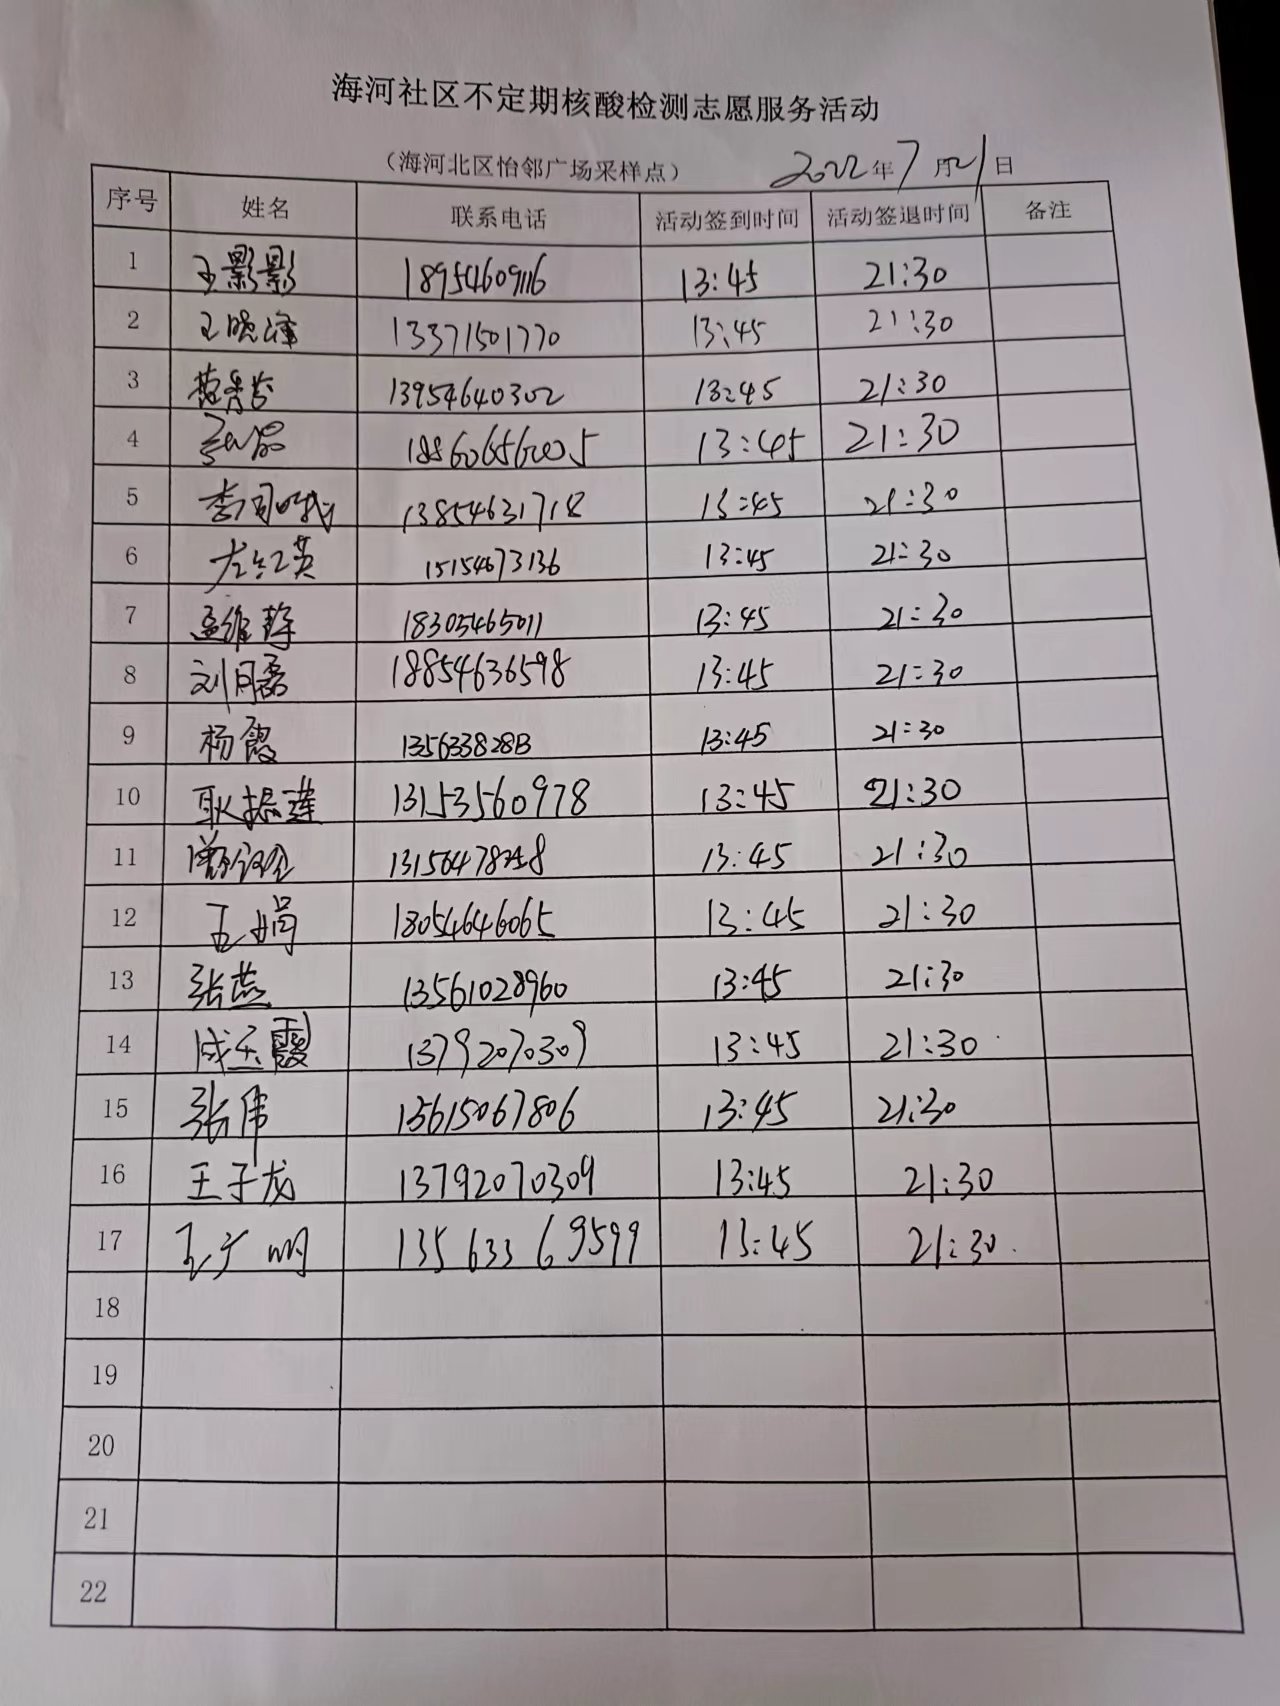 海河社区不定期核酸检测志愿服务活动
（海河北区怡邻广场采样点） 2022年7月21日
序号 姓名 联系电话 活动签到时间 活动签退时间 备注
1 王影影 18954609116 13:45 21:30
2 王晓峰 13371501770 13:45 21:30
3 13954640302 13:45 21:30
4 13:45 21:30
5 13854631718 13:45 21:30
6 左红英 15154673136 13:45 21:30
7 孟维静 18305465011 13:45 21:30
8 刘月磊 18854636598 13:45 21:30
9 杨霞 13:45 21:30
10 耿振莲 13153560978 13:45 21:30
11 13:45 21:30
12 王娟 18054646065 13:45 21:30
13 张燕 13561028960 13:45 21:30
14 成玉霞 13792070309 13:45 21:30
15 张伟 13615067806 13:45 21:30
16 王子龙 13792070309 13:45 21:30
17 王广明 13563369599 13:45 21:30
18
19
20
21
22